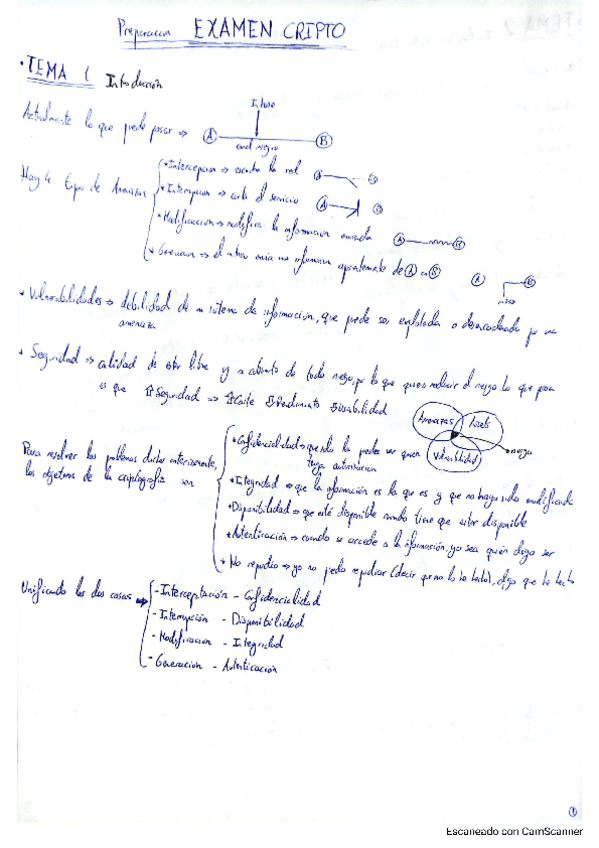 Preparacion EXAMEN CRIPTO
· TEMA 1 Introducción
Intruso
Actualmente lo que puede pasar => A B
canal negro
Hay 4 tipos de Amenazas
• Intercepcion => escucha la red A B
• Interrupcion => corta el servicio A B
• Modificacion => modifica la informacion enviada A B
• Generacion => el intruso envia una informacion aparentemente de A a B A B
intruso
• Vulnerabilidades => debilidad de un sistema de informacion, que puede ser explotada o desencadenada por una
amenaza
• Seguridad => calidad de estar libre y a cubierto de todo riesgo, por lo que quiero reducir el riesgo lo que pasa
es que ⇑Seguridad => ⇑Coste ⇓Rendimiento ⇓Usabilidad
Amenazas Activos
Vulnerabilidad riesgo
Para resolver los problemas dichos anteriormente,
los objetivos de la criptografia son
• Confidencialidad => que solo la puedan ver quien
tenga autorizacion
• Integridad => que la informacion es la que es y que no haya sido modificada
• Disponibilidad => que esté disponible cuando tiene que estar disponible
• Autenticación => cuando se accede a la informacion, yo sea quien digo ser
• No repudio => yo no puedo repudiar (decir que no lo he hecho), algo que he hecho
Unificando las dos cosas =>
- Interceptación - Confidencialidad
- Interrupcion - Disponibilidad
- Modificacion - Integridad
- Generacion - Autenticación
1
Escaneado con CamScanner